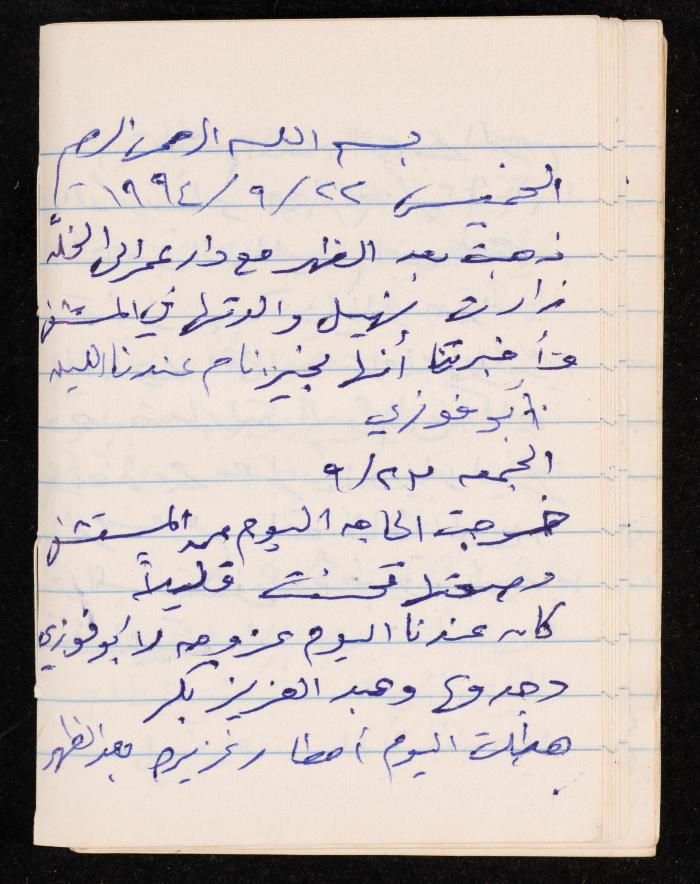 بسم الله الرحمن الرحيم
الخميس ٢٢/٩/١٩٩٤
ذهبت بعد الظهر مع دار عمر الى الخلّه
زارت نهيل والدتها في المستشفى
وأخبرتنا أنها بخير نام عندنا الليله
أبو فوزي
الجمعه ٢٣/٩
خرجت الحاجه اليوم من المستشفى
وصحتها تحسنت قليلاً
كان عندنا اليوم عزومه لابو فوزي
وعبد العزيز بكر
هطلت اليوم أمطار غزيره بعد الظهر